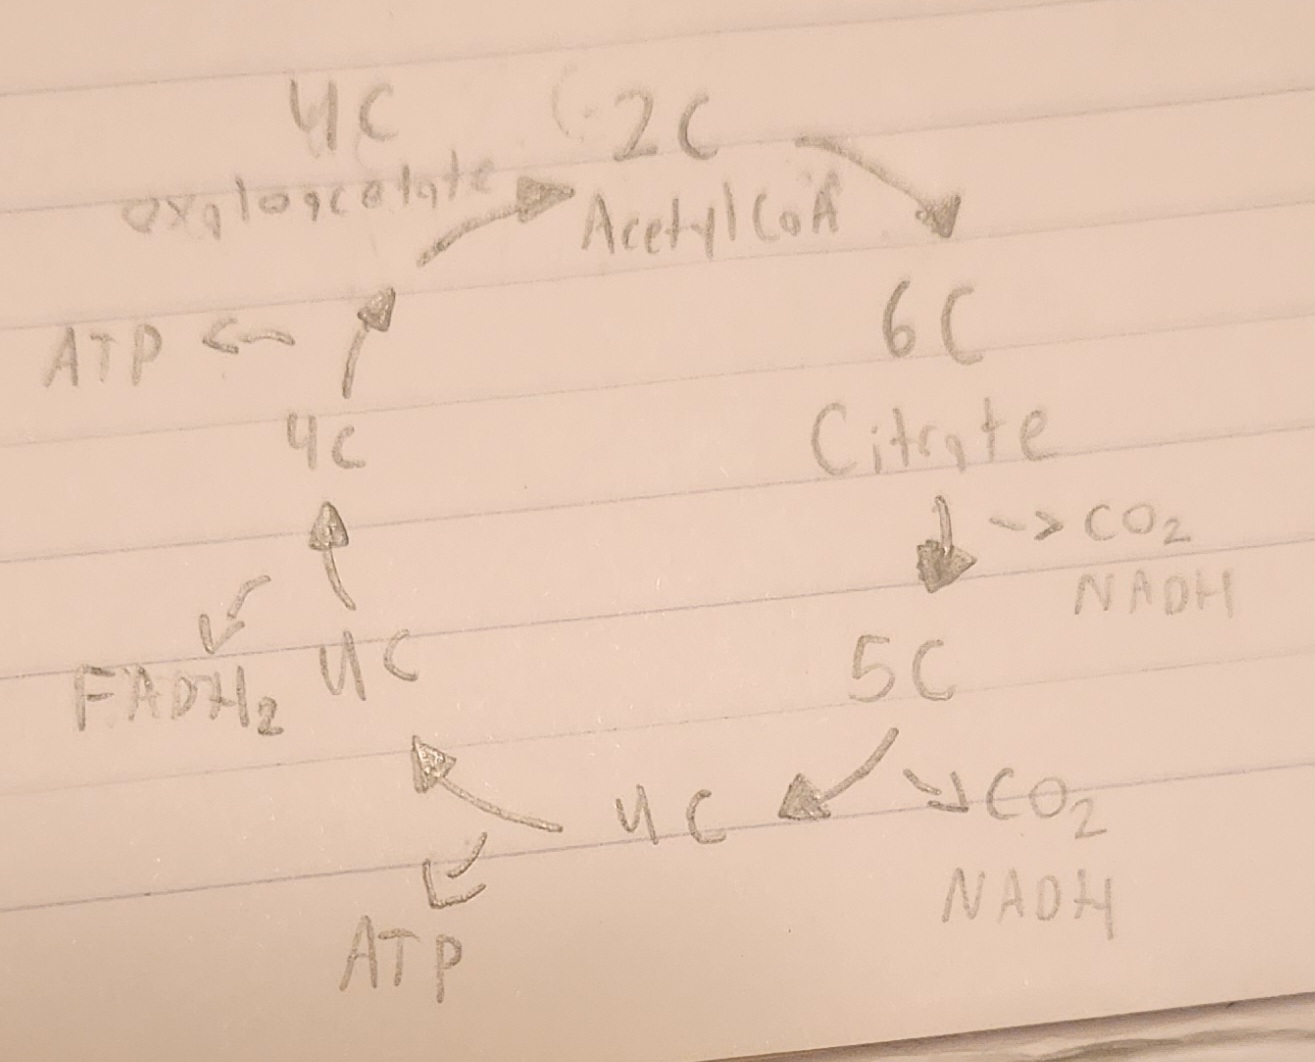 4C 2C
oxaloacetate
Acetyl CoA
6C
ATP
4C
Citrate
CO2
NADH
FADH2 4C
5C
4C
CO2
NADH
ATP